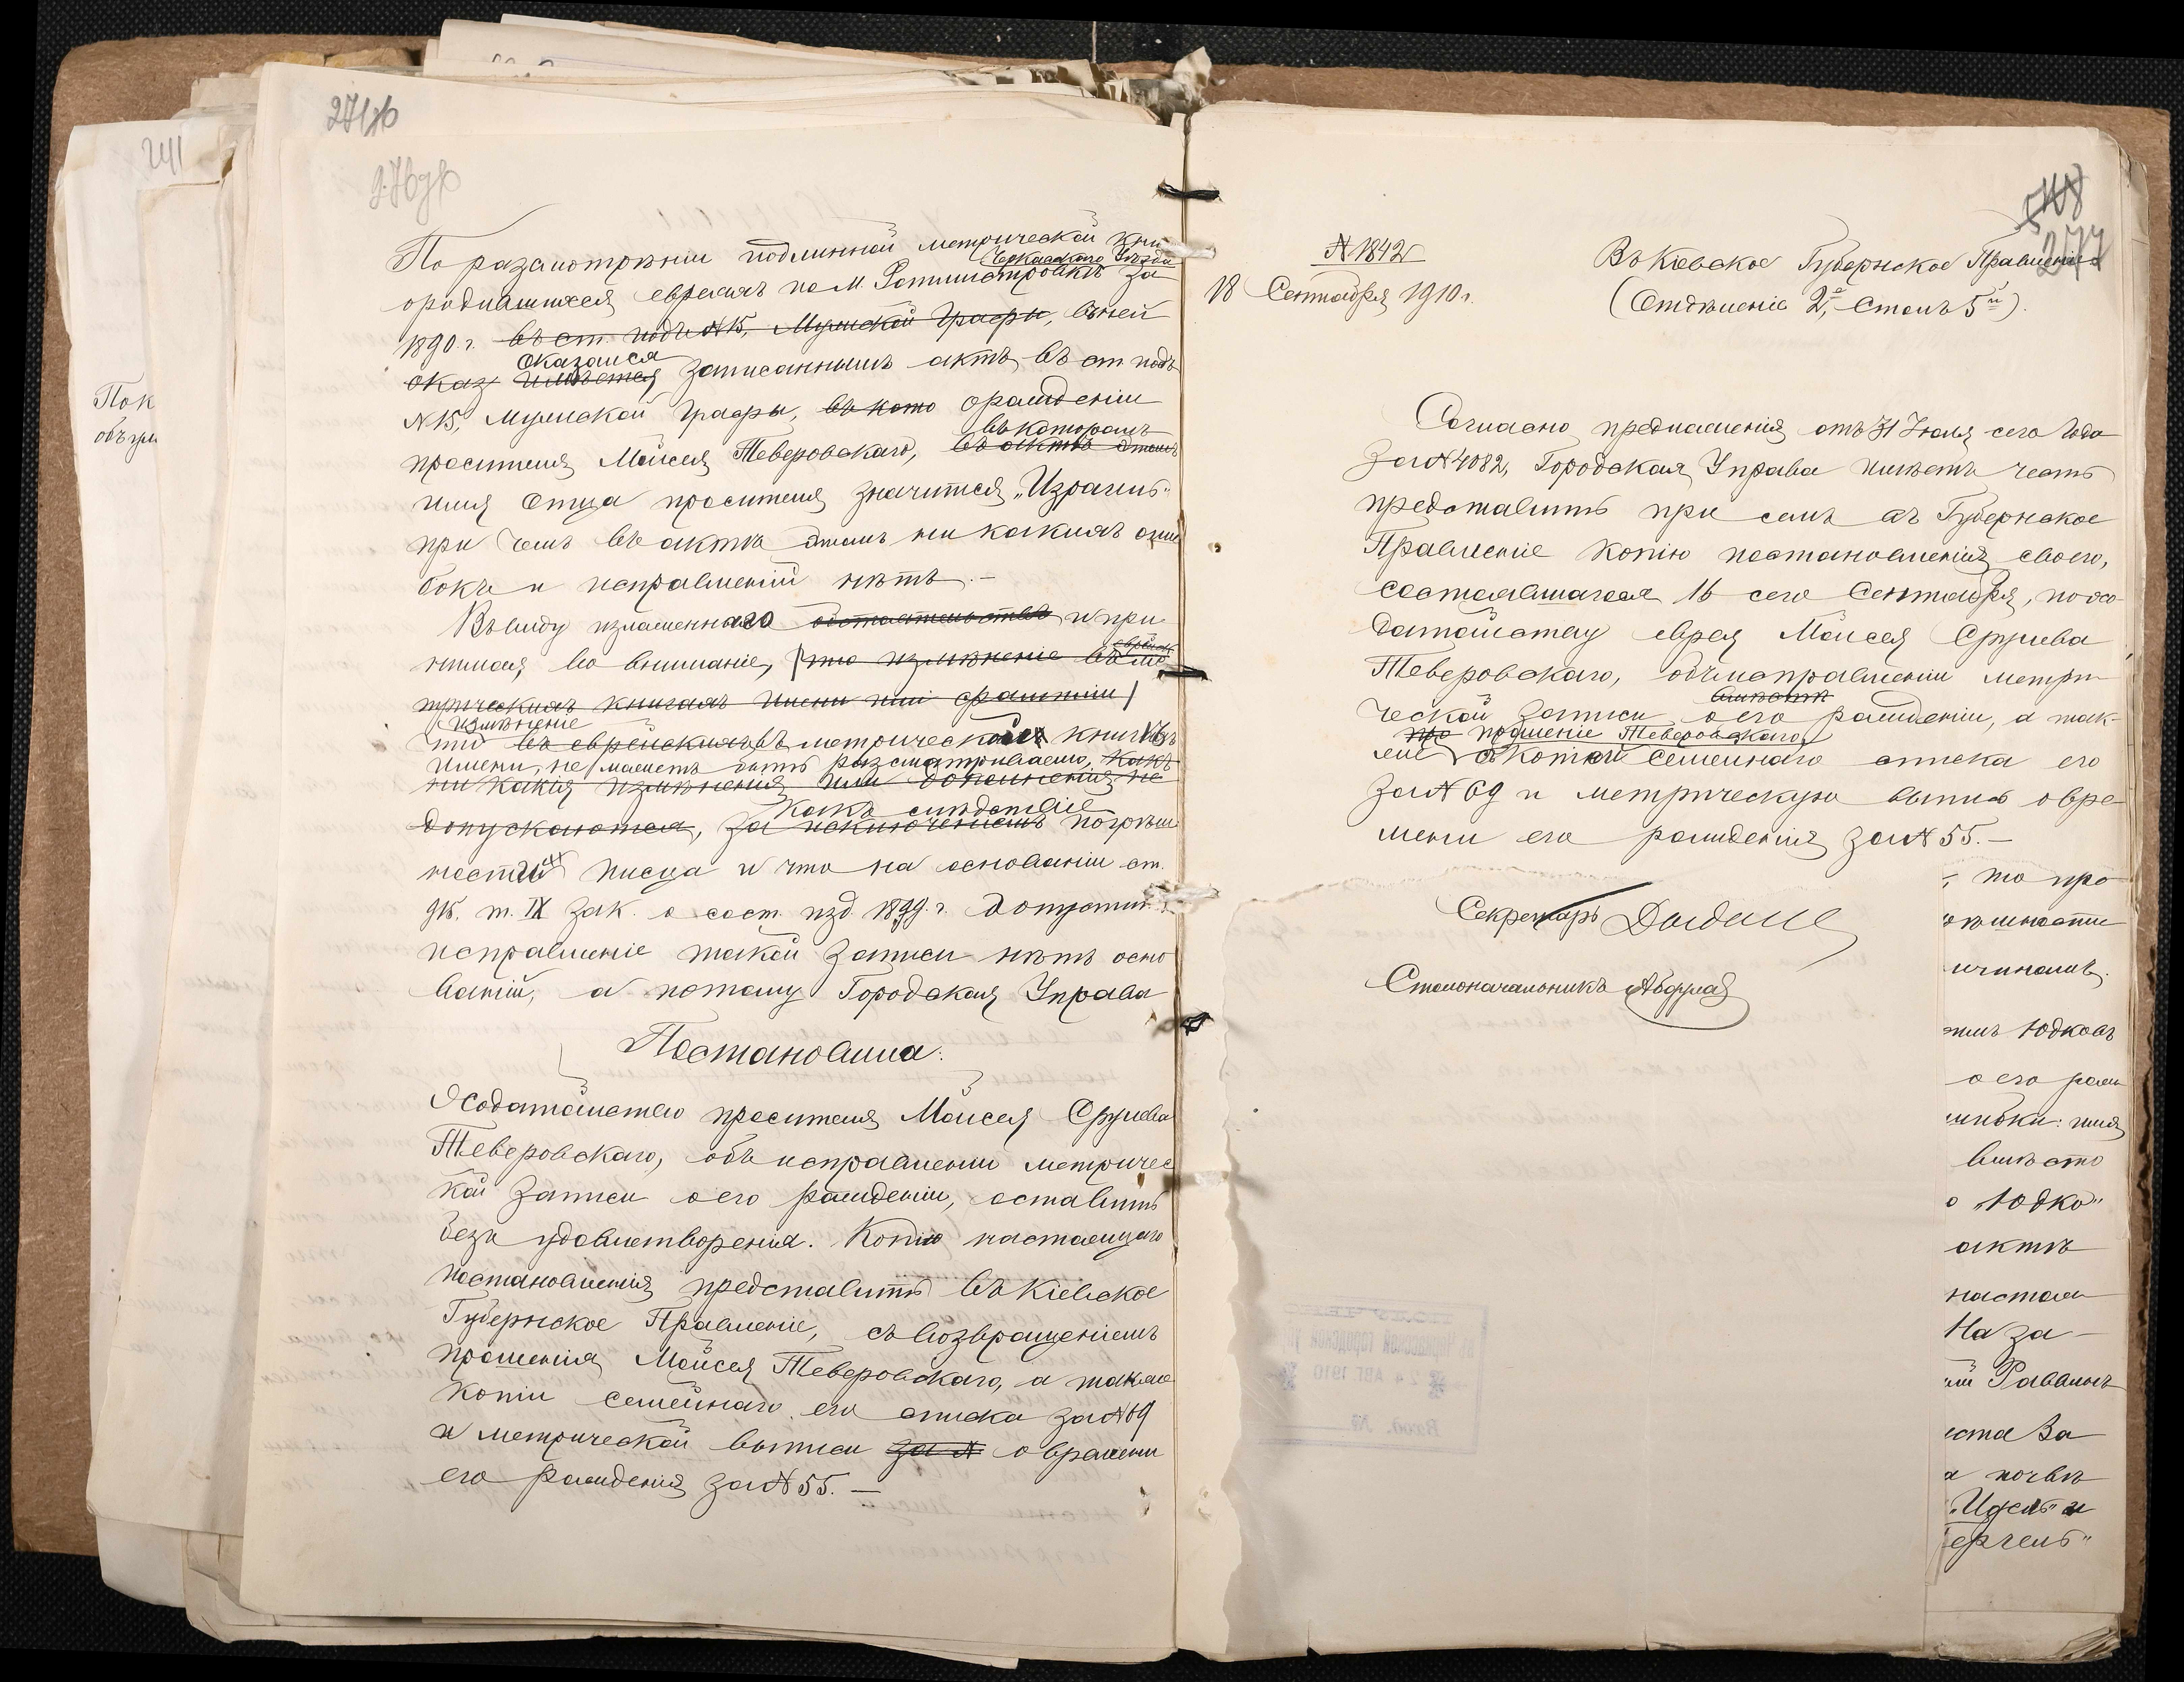 271об
276об
По разсмотрѣнии подлинной метрической кни
Черкасского Уѣзда
ородившихся евреяхъ по М. Ротмистровкѣ за
1890 г. въ ст. подъ №15, Мужской графы, въ ней
оказался
оказ имѣется записаннымъ актъ въ ст подъ
№15, Мужской графы, въ кото орождении
въ которомъ
просителя Мойсея Теверовскаго, въ актѣ этомъ
имя Отца просителя значится „Израиль"
при чемъ въ актѣ этомъ ни какихъ оши
бокъ и исправленій нѣтъ.—
Въ виду изложеннаго обстоятельства и при
нимая во вниманіе, что измѣненіе въ ме
еврейск
трическихъ книгахъ имени или фамиліи
измѣненіе
что въ еврейскихъ въ метрической книгѣ
имени, не можетъ быть разсматриваемо, какъ
ни какія измѣненія или дополненія не
какъ слѣдствіе
допускаются, за исключеніемъ погрѣш
ности писца и что на основаніи ст.
915. т. IX Зак. о сост. изд 1899 г.
исправленіе такой записи нѣтъ осно
ваній, а потому Городская Управа
Постановила:
Ходатайство просителя Мойсея Сруева
Теверовскаго, объ исправлении метричес
кой записи о его рождении, оставить
безъ удовлетворенія. Копію настоящаго
постановленія представить въ Кіевское
Губернское Правленіе, съ возвращеніемъ
прошенія Мойсея Теверовскаго, а также
копіи семейнаго его списка за №69
и метрической выписи за № о времени
его рожденія за №55.—
241
Пок
объ
277
№1842
18 Сентября 1910 г.
Въ Кіевское Губернское Правленіе
(Отдѣленіе 2е, Столъ 5й).
Согласно предписанія отъ 31 Іюля сего года
за №4082, Городская Управа имѣетъ честь
представить при семъ въ Губернское
Правленіе копію постановленія своего,
состоявшагося 16 сего Сентября, по хо
датайству еврея Мойсея Сруева
Теверовскаго, объ исправлении метри
вмѣстѣ
ческой записи о его рождении, а так-
про прошеніе Теверовскаго
же съ копіей семейнаго списка его
за №69 и метрическую выпись о вре-
мени его рожденія за №55.—
Секретарь
Столоначальникъ
то про
Юдковъ
о его рож
ошибки: имя
вмѣсто
о „Юдко"
актѣ
настоя
На за-
Раввинъ